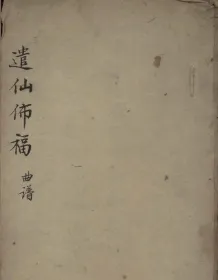 遣仙佈福
曲谱